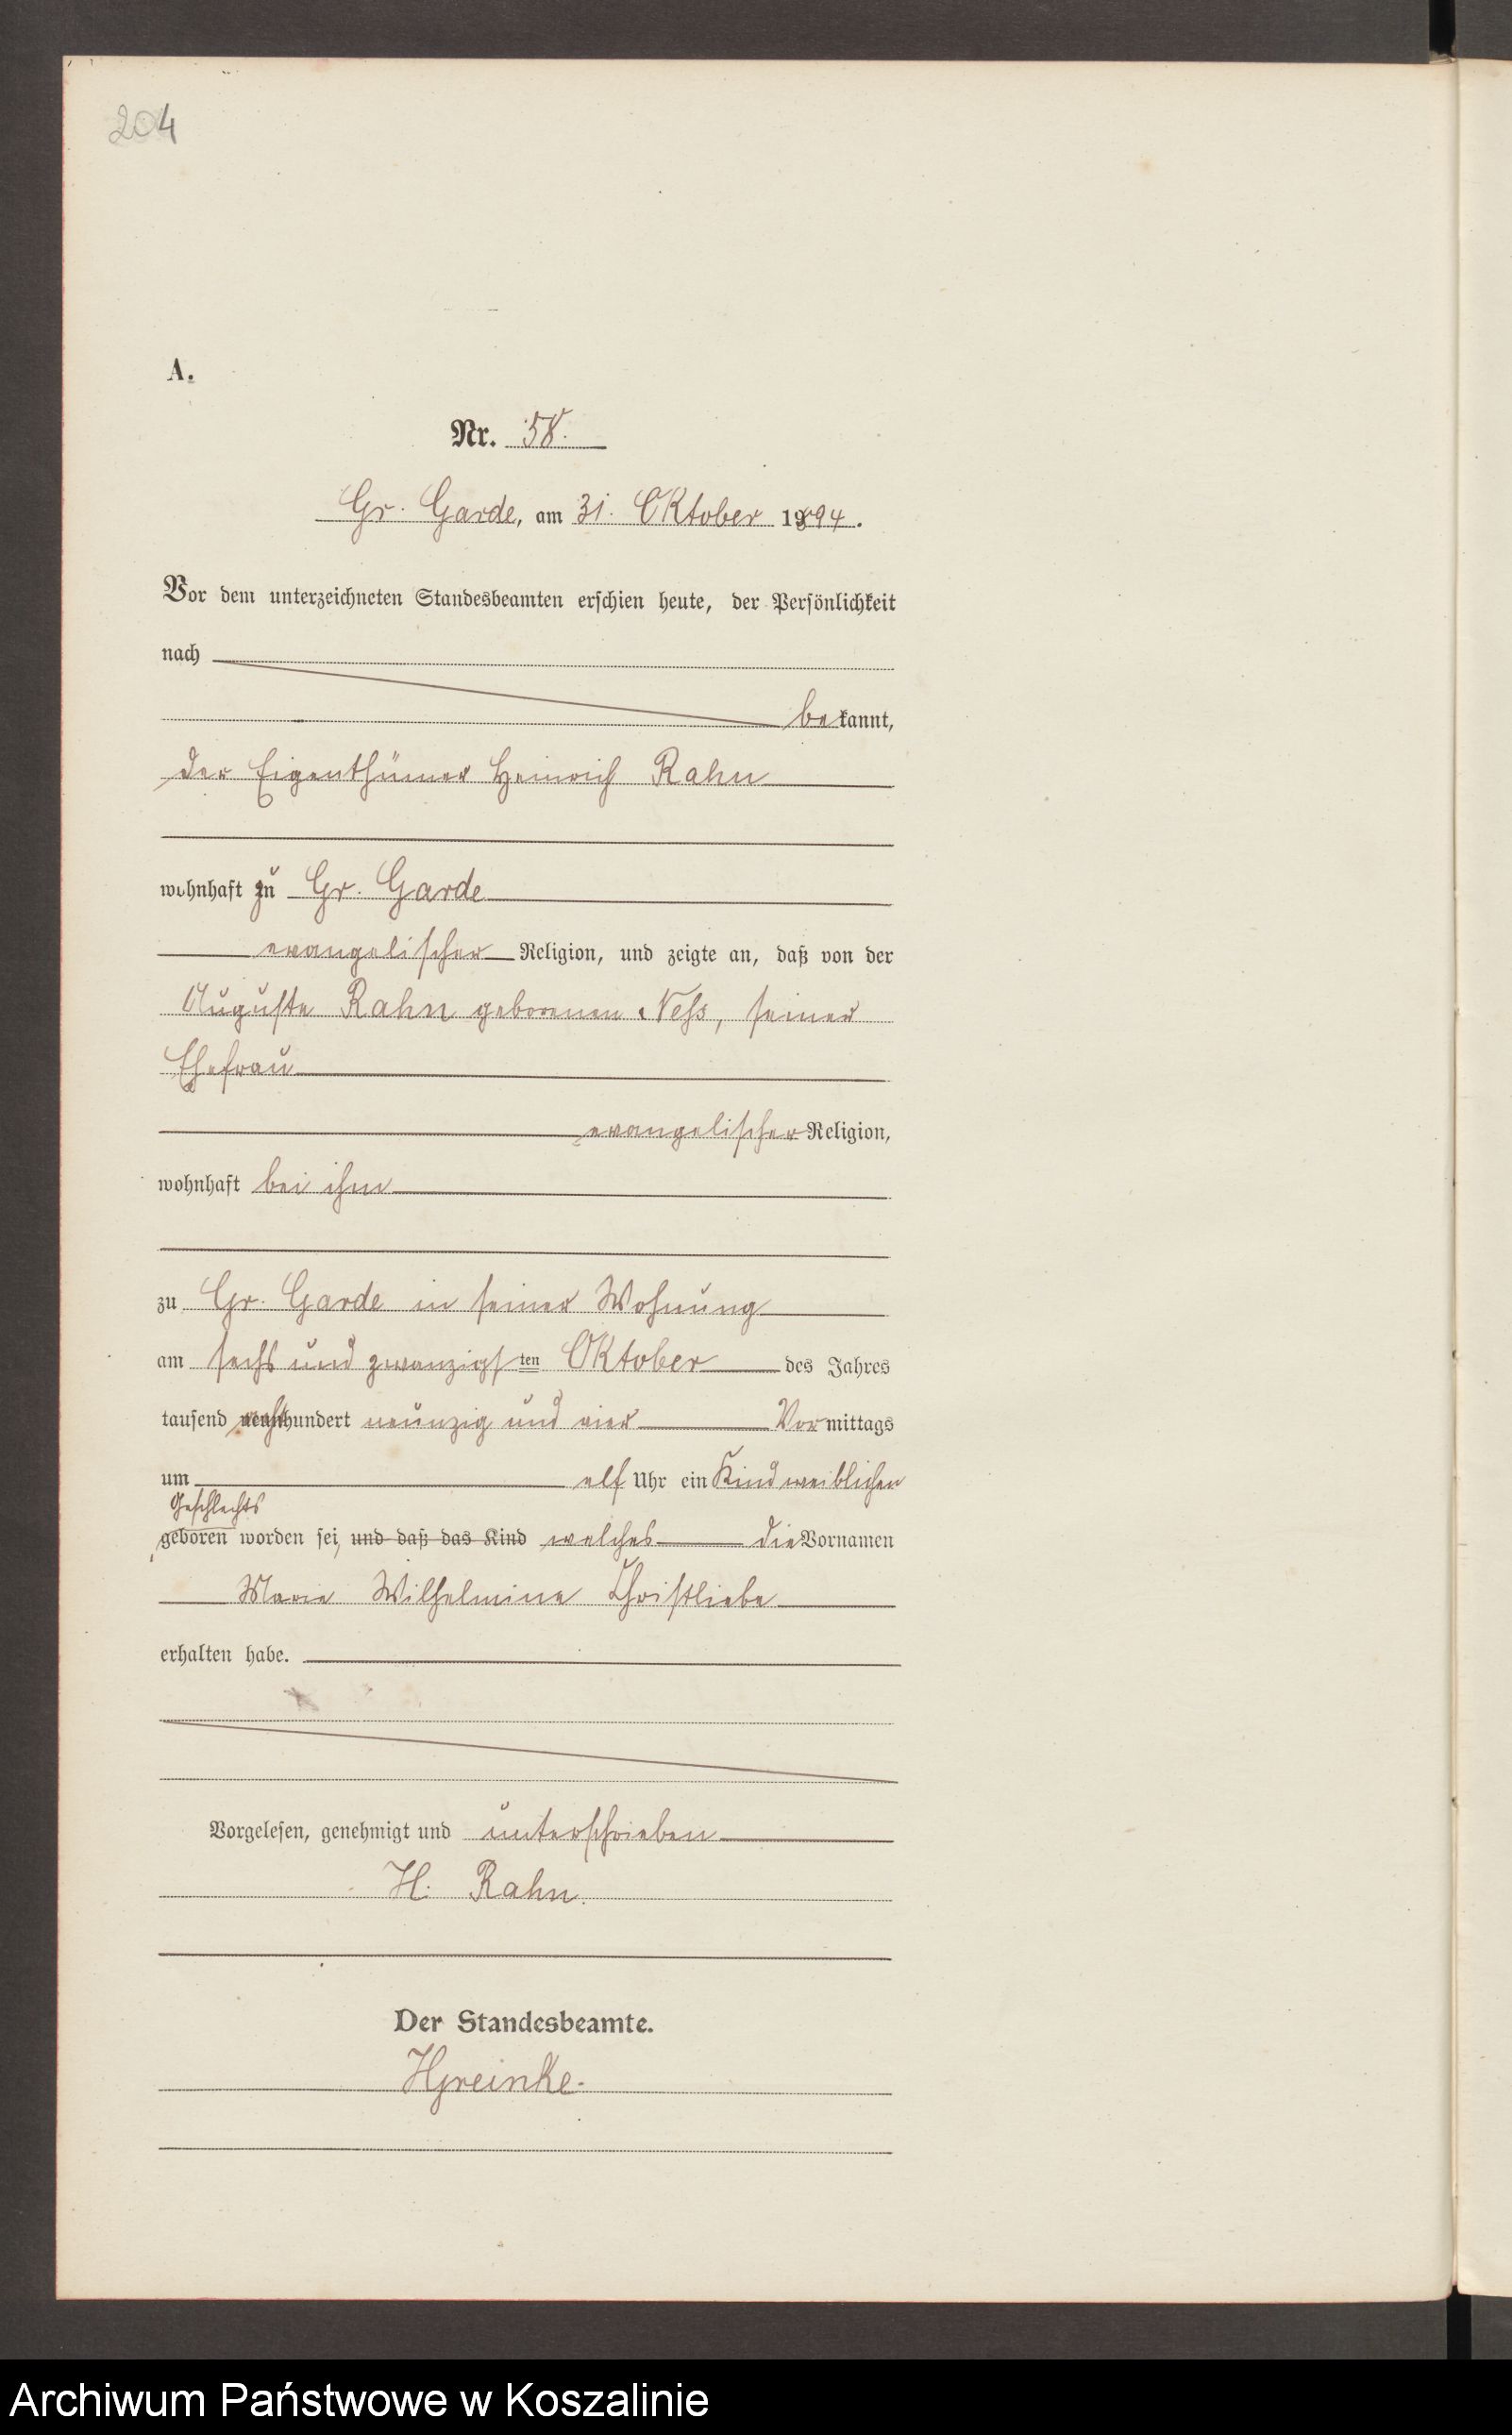 204
A.
Nr. 58.
Gr. Garde, am 31. Oktober 1894.
Vor dem unterzeichneten Standesbeamten erschien heute, der Persönlichkeit
nach
bekannt,
der Eigenthümer Heinrich Rahn
wohnhaft zu Gr. Garde
evangelischer Religion, und zeigte an, daß von der
Auguste Rahn geborenen Neß, seiner
Ehefrau
evangelischer Religion,
wohnhaft bei ihm
zu Gr. Garde in seiner Wohnung
am sechs und zwanzigsten Oktober des Jahres
tausend achthundert neunzig und vier Vormittags
um elf Uhr ein Kind weiblichen
Geschlechts
geboren worden sei, und daß das Kind welches die Vornamen
Marie Wilhelmine Christliebe
erhalten habe.
Vorgelesen, genehmigt und unterschrieben
H. Rahn.
Der Standesbeamte.
HGreinke.
Archiwum Państwowe w Koszalinie